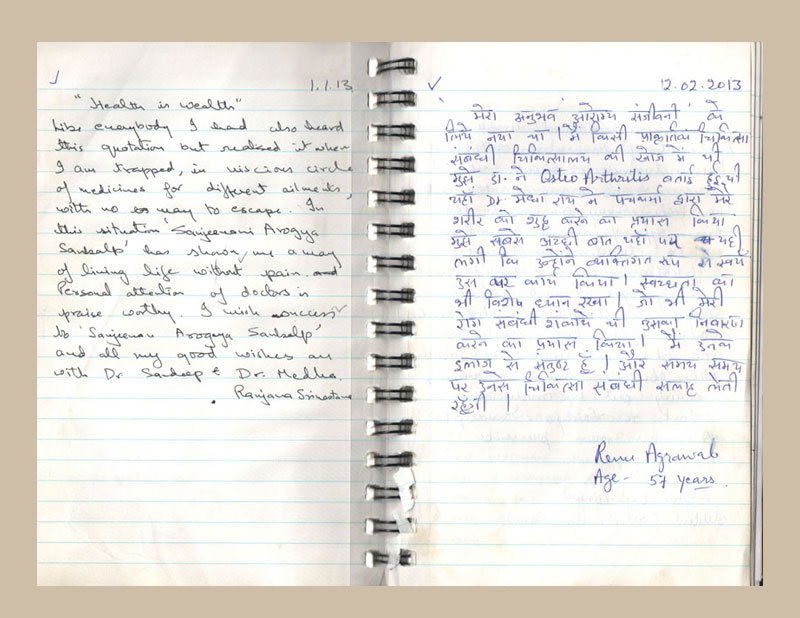 1.1.13
"Health is wealth"
Like everybody I had also heard
this quotation but realised it when
I am trapped, in viscious circle
of medicines for different ailments,
with no way to escape. In
this situation 'Sanjeevani Arogya
Sankalp' has shown me a way
of living life without pain and
Personal attention of doctors is
praise worthy. I wish success
to 'Sanjeevani Arogya Sankalp'
and all my good wishes are
with Dr Sandeep & Dr. Medha.
Ranjana Srivastava
12.02.2013
मेरा अनुभव 'आरोग्य संजीवनी' के
लिये नया था। मैं किसी प्राकृतिक चिकित्सा
संबंधी चिकित्सालय की खोज में थी
मुझे डा. ने Osteo Arthritis बताई हुई थी
यहाँ Dr. मेधा राय ने पंचकर्मा द्वारा मेरे
शरीर को शुद्ध करने का प्रयास किया
मुझे सबसे अच्छी बात यहाँ पर यही
लगी कि उन्होंने व्यक्तिगत रूप से स्वयं
उस पर काम किया। स्वच्छता का
भी विशेष ध्यान रखा। जो भी मेरी
रोग संबंधी शंकायें थी उसका निवारण
करने का प्रयास किया। मैं इनके
इलाज से संतुष्ट हूं। और समय समय
पर इनसे चिकित्सा संबंधी सलाह लेती
रहूँगी।
Renu Agrawal
Age - 57 years